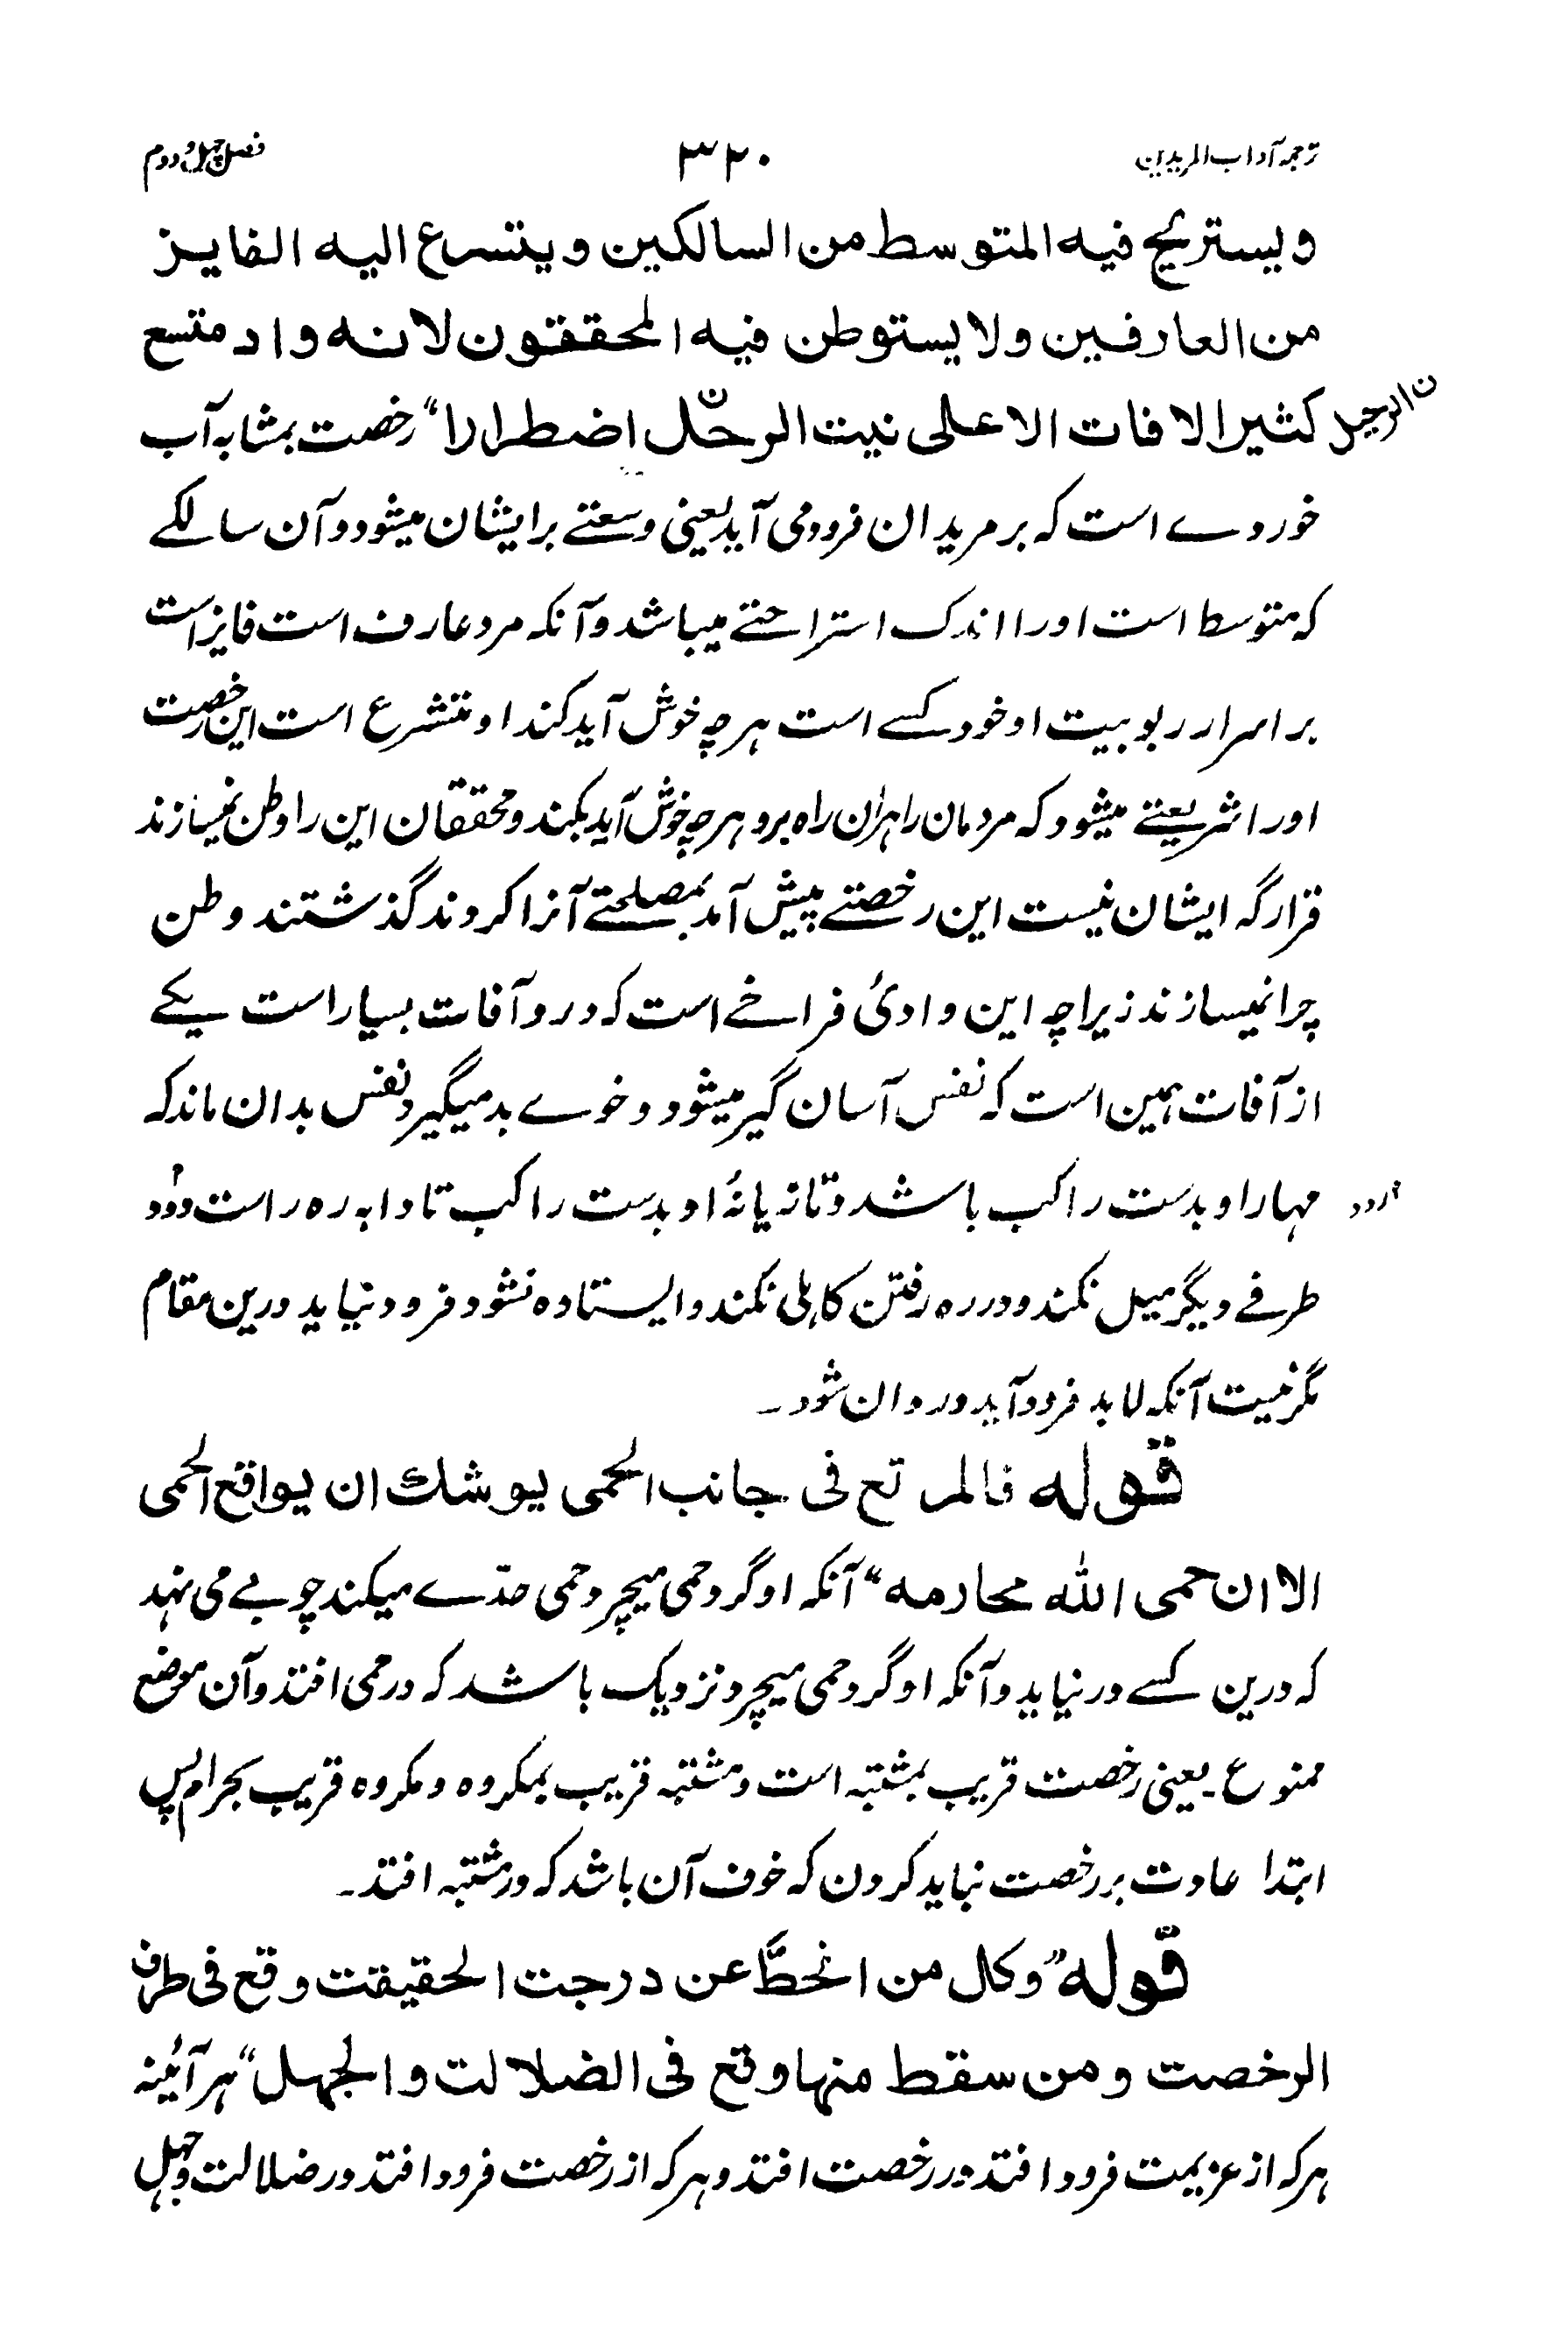 ترجمه آداب المریدین ۳۲۰ فصل چهل و دوم
ویستریح فیه المتوسط من السالکین ویتسرع الیه الفایز
من العارفین ولا یستوطن فیه المحققون لانه واد متسع
کثیر الافات الا علی نیت الرحّل اضطرارا” رخصت بمثابه آب
ن الرحیل
خوردے است که بر مریدان فرود می آید یعنی وسعتے بر ایشان میشود و آن سالکے
که متوسط است او را اندک استراحتے میباشد و آنکه مرد عارف است فایز است
بر اسرار ربوبیت او خود کسے است هر چه خوش آید کند او متشرع است این رخصت
او را شریعتے میشود که مردمان را بران راه برد هر چه خوش آید بکند و محققان این را وطن نمیسازند
قرارگه ایشان نیست این رخصتے پیش آمد بمصلحتے آنرا کردند گذشتند وطن
چرا نمیسازند زیرا چه این وادئ فراخے است که درو آفات بسیار است یکے
از آفات همین است که نفس آسان گیر میشود و خوے بد میگیرد نفس بدان ماند که
مهار او بدست راکب باشد و تازیانۀ او بدست راکب تا دابه ره راست رود
طرفے دیگر میل نکند و در ره رفتن کاہلی نکند و ایستاده نشود فرود نیاید درین مقام
مگر نیت آنکه لابد فرود آید و روان شود۔
قوله فالمرتع فی جانب الحمی یوشك ان یواقع الحمی
الا ان حمی الله محارمه” آنکه او گرد حمی میچرد حمی حدّے میکند چوبے می نهد
که درین کسے در نیاید و آنکه او گرد حمی میچرد نزدیک باشد که در حمی افتد و آن موضع
ممنوع۔ یعنی رخصت قریب بمشتبه است و مشتبه قریب بمکروه و مکروه قریب بحرام پس
ابتدا عادت بر رخصت نباید کردن که خوف آن باشد که در مشتبه افتد۔
قوله ”وکل من انحطّ عن درجت الحقیقت وقع فی طرف
الرخصت ومن سقط منها وقع فی الضلالت والجهل” هر آئینه
هر که از عزیمت فرود افتد در رخصت افتد و هر که از رخصت فرود افتد در ضلالت و جهل